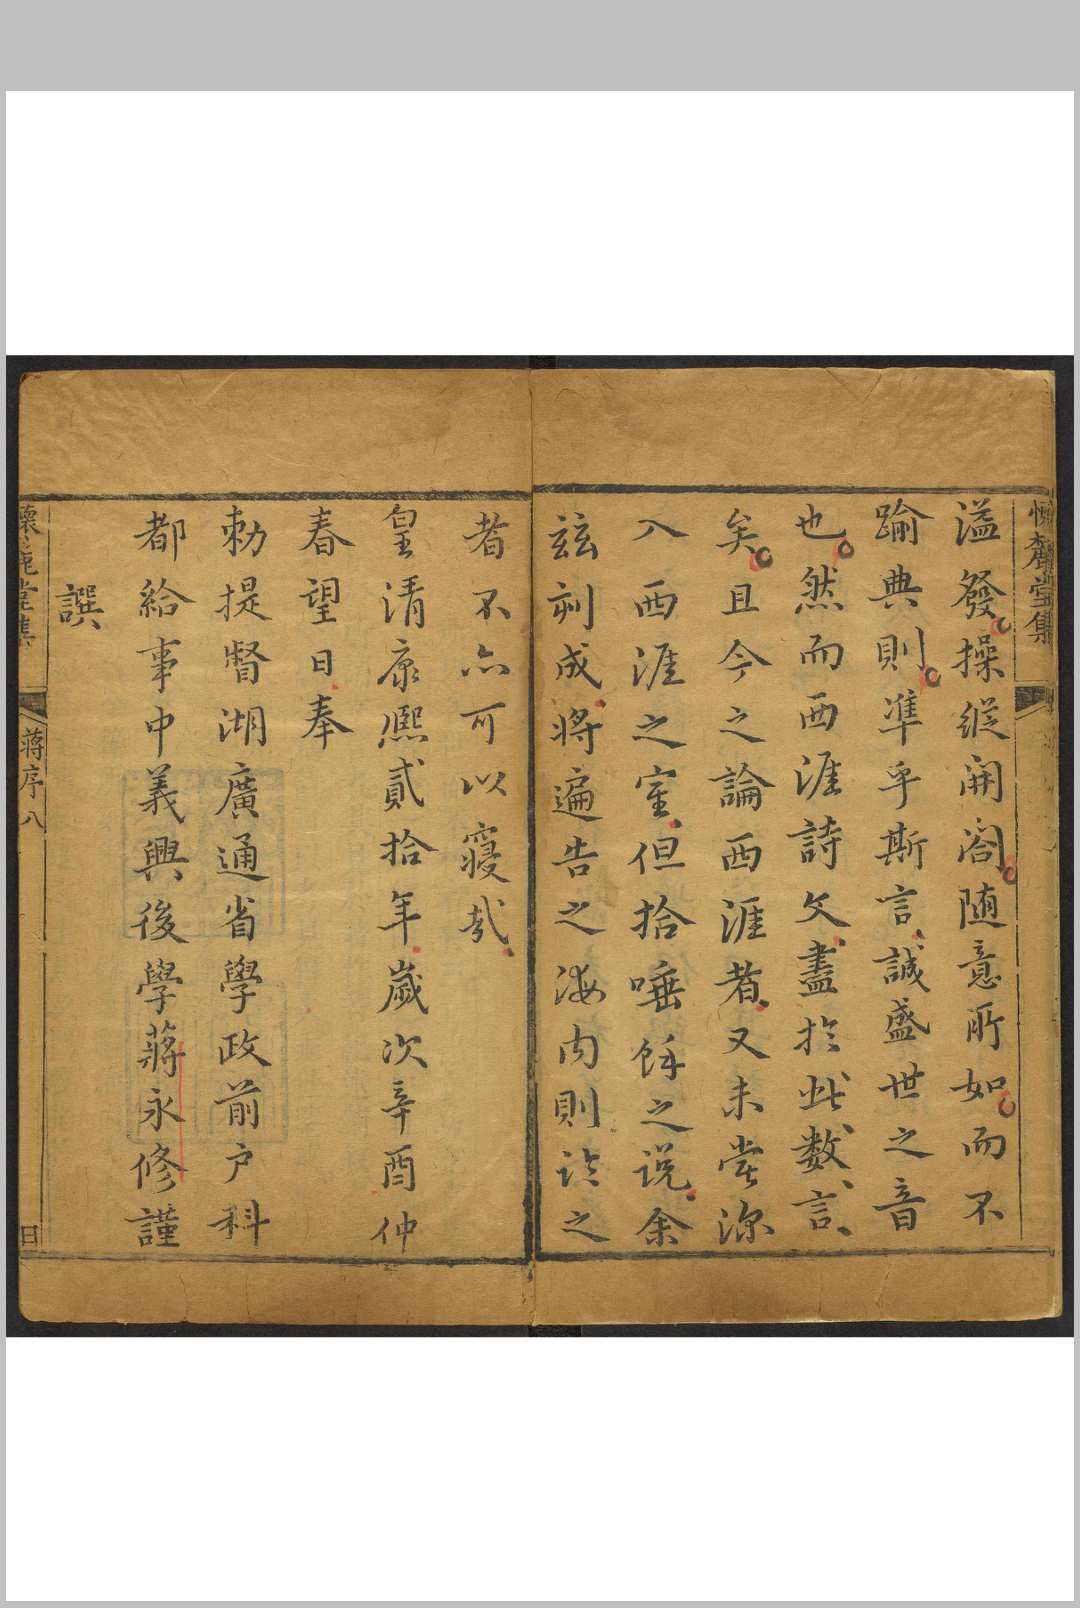 懷麓堂集
溢發操縱開闔随意所如而不
踰典則凖乎斯言誠盛世之音
也然而西涯詩文盡於此数言
矣且今之論西涯者又未嘗深
入西涯之室但拾唾餘之説余
兹刻成將遍告之海内則詅之
者不亦可以寢哉
皇清康熈貳拾年歲次辛酉仲
春望日奉
勅提督湖廣通省學政前户科
都給事中義興後學蔣永修謹
譔
懷麓堂集
蔣序八